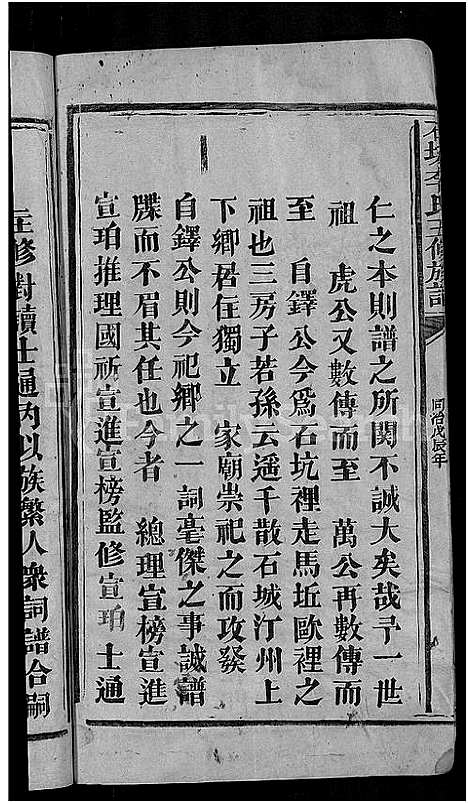 石坑李氏五修族譜
同治戊辰年
仁之本則譜之所關不誠大矣哉予一世
祖 虎公又數傳而至 萬公再數傳而
至 自鐸公今爲石坑裡走馬坵歐裡之
祖也三房子若孫云遥千散石城汀州上
下卿居住獨立 家廟崇祀之而攻發
自鐸公則今祀卿之一詞毫傑之事誠譜
牒而不眉其任也今者 總理宣榜宣進
宣珀推理國祈宣進宣榜監修宣珀士通
主修對讀士通丙以族繁人衆詞譜合嗣